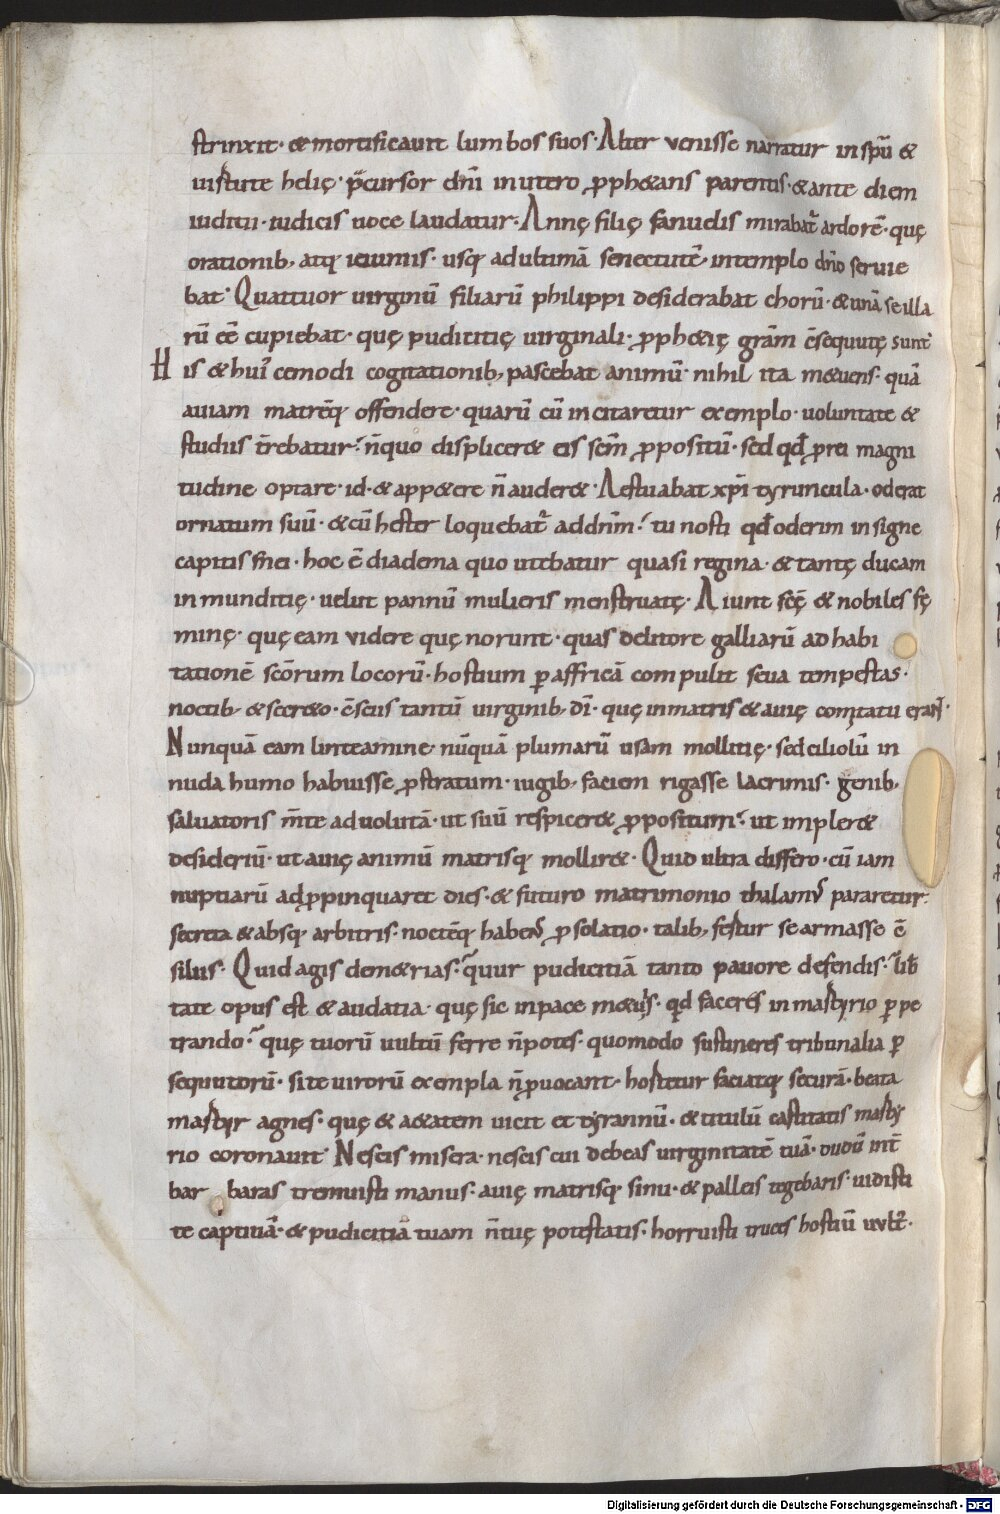 strinxit· & mortificauit lumbos suos· Alter venisse narratur in spū &
uirtute helię· p̄cursor dn̄i in utero ꝓph&ans parentis· & ante diem
iuditii· iudicis uoce laudatur· Annę filię fanudis mirabat᷑ ardorē· quę
orationib; atq; ieiuniis· usq; ad ultimā senectutē· in templo dn̄o seruie
bat· Quattuor uirginū filiarū philippi desiderabat chorū· & unā se illa
rū eē cupiebat· quę pudicitię uirginali· ꝓph&ię grām c̄sequutę sunt·
His & hui᷒cemodi cogitationib; pascebat animū· nihil ita m&uens· quā
auiam matrēq; offendere· quarū cū incitaretur exemplo· uoluntate &
studiis t̄rebatur· n̄ quo displicer& eis sc̄m ꝓpositū· sed qđ ꝓ rei magni
tudine optare· id· & app&ere n̄ auder&· Aestuabat xp̄i tyruncula· oderat
ornatum suū· & cū hester loquebat᷑ ad dn̄m· tu nosti qđ oderim insigne
capitis mei· hoc ē diadema quo utebatur quasi regina· & tantę ducam
inmunditię· uelut pannū mulieris menstruatę· Aiunt sc̄ę & nobiles fę
minę· quę eam videre quę norunt· quas de litore galliarū ad habi
tationē sc̄orum locorū· hostium ꝑ affricā compulit seua tempestas·
noctib; & secr&o· c̄sciis tantū uirginib; dī· quę in matris & auię comitatu erant·
Nunquā eam linteamine· nūquā plumarū usam mollitię· sed ciliolū in
nuda humo habuisse ꝓ stratum· iugib; faciem rigasse lacrimis· genib;
saluatoris m̄te aduolutā· ut suū respicer& ꝓpositum· ut impler&
desideriū· ut auię animū matrisq; mollir&· Quid ultra differo· cū iam
nuptiarū adꝓpinquaret dies· & futuro matrimonio thalam᷒ pararetur·
secreta & absq; arbitris· noctēq; habens ꝓ solatio· talib; fertur se armasse c̄
siliis· Quid agis dem&rias· quur pudicitiā tanto pauore defendis· lib
tate opus est & audatia· quę sic in pace m&uis· qđ faceres in martyrio ꝑpe
trando· quę tuorū uultū ferre n̄ potes· quomodo sustineres tribunalia ꝑ
sequutorū· si te uirorū exempla n̄ ꝓuocant· hortetur faciatq; securā· beata
martyr agnes· quę & a&atem uicit et tyrannū· & titulū castitatis marty
rio coronauit· Nescis misera· nescis cui debeas uirginitatē tuā· dudū int̄
bar baras tremuisti manus· auię matrisq; sinu· & palleis tegebaris· uidisti
te captiuā· & pudicitiā tuam n̄ tuę potestatis· horruisti truces hostiū uult᷒·
Digitalisierung gefördert durch die Deutsche Forschungsgemeinschaft - DFG